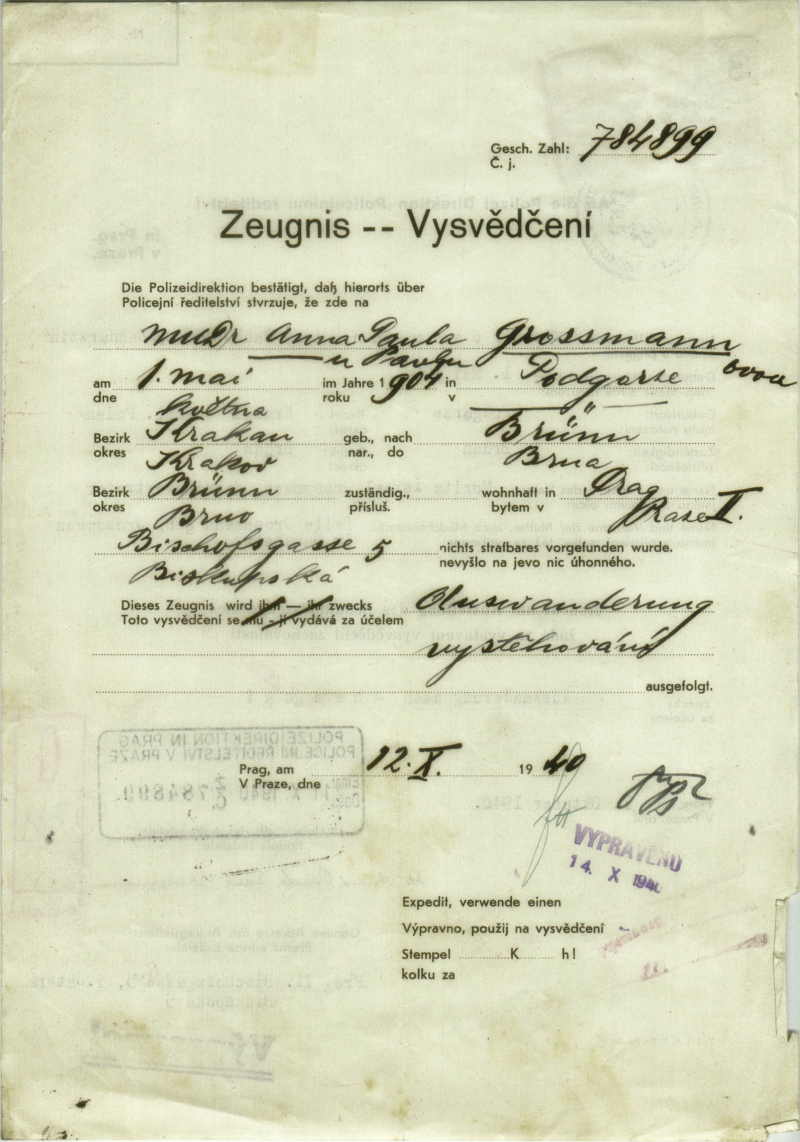 Gesch. Zahl: 784899
Č. j.
Zeugnis -- Vysvědčení
Die Polizeidirektion bestätigt, daß hierorts über
Policejní ředitelství stvrzuje, že zde na
MUDr Anna Paula Grossmann
u Pavlu ovou
am 1. Mai im Jahre 1904 in Podgorze
dne května roku v "
Bezirk Krakau geb., nach Brünn
okres Krakov nar., do Brna
Bezirk Brünn zuständig., wohnhaft in Prag
okres Brno přísluš. bytem v Praze II.
Bischofsgasse 5 nichts strafbares vorgefunden wurde.
Biskupská nevyšlo na jevo nic úhonného.
Dieses Zeugnis wird ihm — ihr zwecks Auswanderung
Toto vysvědčení se mu - jí vydává za účelem
vystěhování
ausgefolgt.
POLIZEIDIREKTION IN PRAG
POLICEJNÍ ŘEDITELSTVÍ V PRAZE
784899
Prag, am 12. X. 1940
V Praze, dne
VYPRAVENO
14. X 1940
Expedit, verwende einen
Výpravno, použij na vysvědčení
Stempel K h!
kolku za